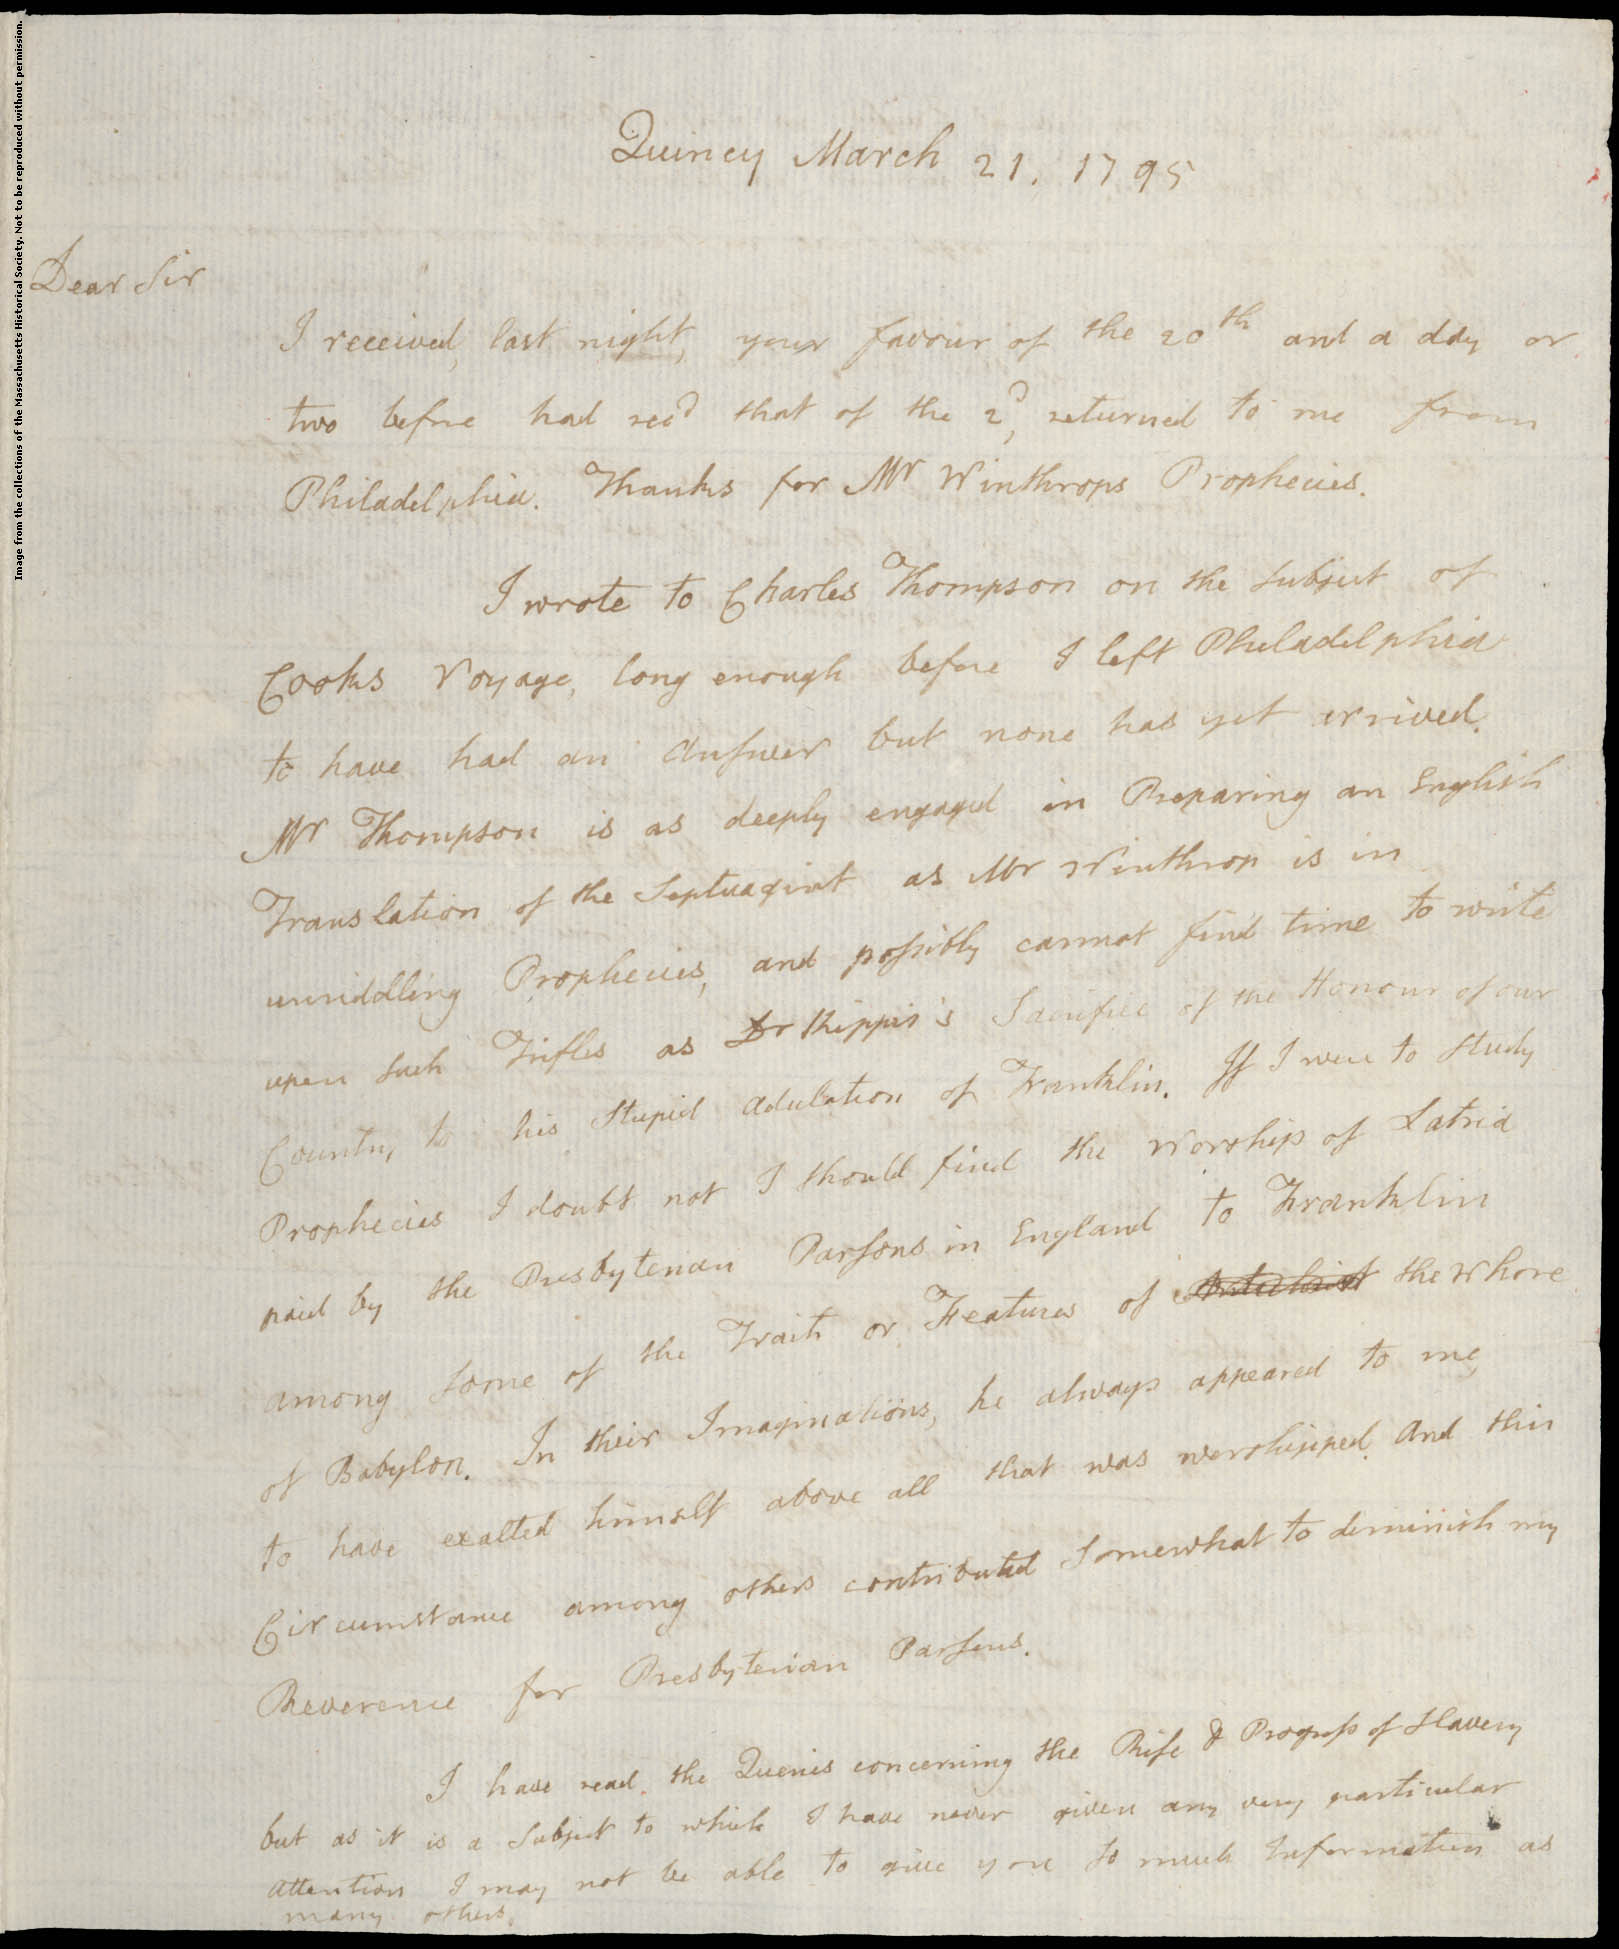 Image from the collections of the Massachusetts Historical Society. Not to be reproduced without permission.
Quincy March 21. 1795
Dear Sir
I received, last night, your favour of the 20th and a day or
two before had recd that of the 2d, returned to me from
Philadelphia. Thanks for Mr Winthrops Prophecies.
I wrote to Charles Thompson on the subject of
Cooks Voyage, long enough before I left Philadelphia
to have had an Answer but none has yet arrived.
Mr Thompson is as deeply engaged in Preparing an English
Translation of the Septuagint as Mr Winthrop is in
unriddling Prophecies, and possibly cannot find time to write
upon such Trifles as Dr Kippis's Sacrifice of the Honour of our
Country to his stupid adulation of Franklin. If I were to study
Prophecies I doubt not I should find the Worship of Latria
paid by the Presbyterian Parsons in England to Franklin
among some of the Traits or Features of Antichrist the Whore
of Babylon. In their Imaginations, he always appeared to me,
to have exalted himself above all that was worshipped. And this
Circumstance among others contributed somewhat to diminish my
Reverence for Presbyterian Parsons.
I have read the Queries concerning the Rise & Progress of Slavery
but as it is a subject to which I have never given any very particular
attention I may not be able to give you so much Information as
many others.